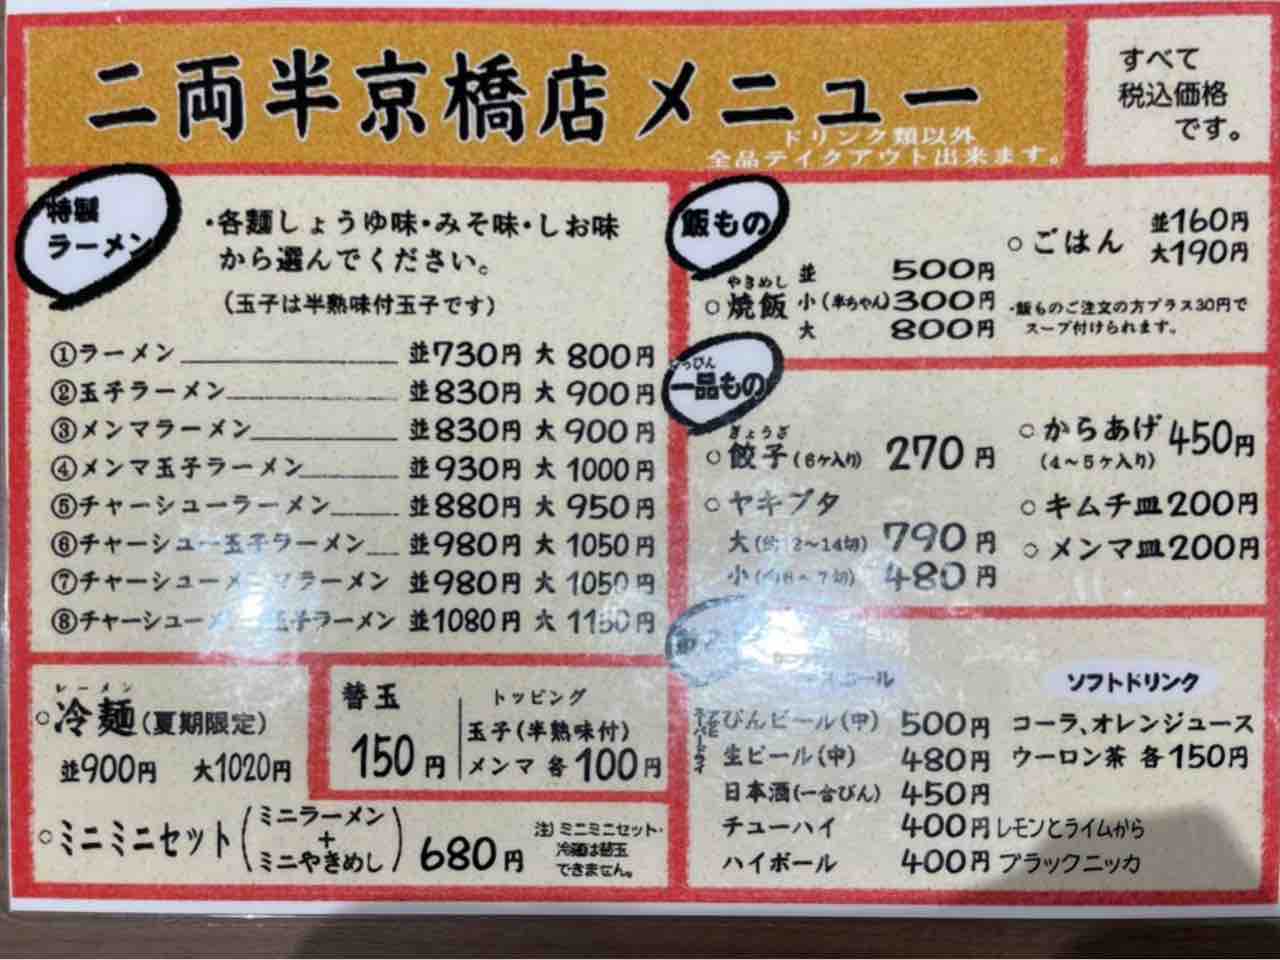 二両半京橋店メニュー
ドリンク類以外
全品テイクアウト出来ます。
すべて
税込価格
です。
特製
ラーメン
・各麺しょうゆ味・みそ味・しお味
から選んでください。
(玉子は半熟味付玉子です)
①ラーメン 並730円 大800円
②玉子ラーメン 並830円 大900円
③メンマラーメン 並830円 大900円
④メンマ玉子ラーメン 並930円 大1000円
⑤チャーシューラーメン 並880円 大950円
⑥チャーシュー玉子ラーメン 並980円 大1050円
⑦チャーシューメンマラーメン 並980円 大1050円
⑧チャーシューメ 玉子ラーメン 並1080円 大1150円
レーメン
○冷麺(夏期限定)
並900円 大1020円
替玉
150円
トッピング
玉子(半熟味付)
メンマ 各100円
○ミニミニセット(ミニラーメン
+
ミニやきめし) 680円
注)ミニミニセット・
冷麺は替玉
できません。
飯もの
やきめし
○焼飯 並 500円
小(半ちゃん)300円
大 800円
○ごはん 並160円
大190円
・飯ものご注文の方プラス30円で
スープ付けられます。
いっぴん
一品もの
ぎょうざ
○餃子(6ヶ入り) 270円
○ヤキブタ
大(約12〜14切) 790円
小(約6〜7切) 480円
○からあげ 450円
(4〜5ヶ入り)
○キムチ皿200円
○メンマ皿200円
コール
アサヒスーパードライ
びんビール(中) 500円
生ビール(中) 480円
日本酒(一合びん) 450円
チューハイ 400円 レモンとライムから
ハイボール 400円 ブラックニッカ
ソフトドリンク
コーラ、オレンジュース
ウーロン茶 各150円